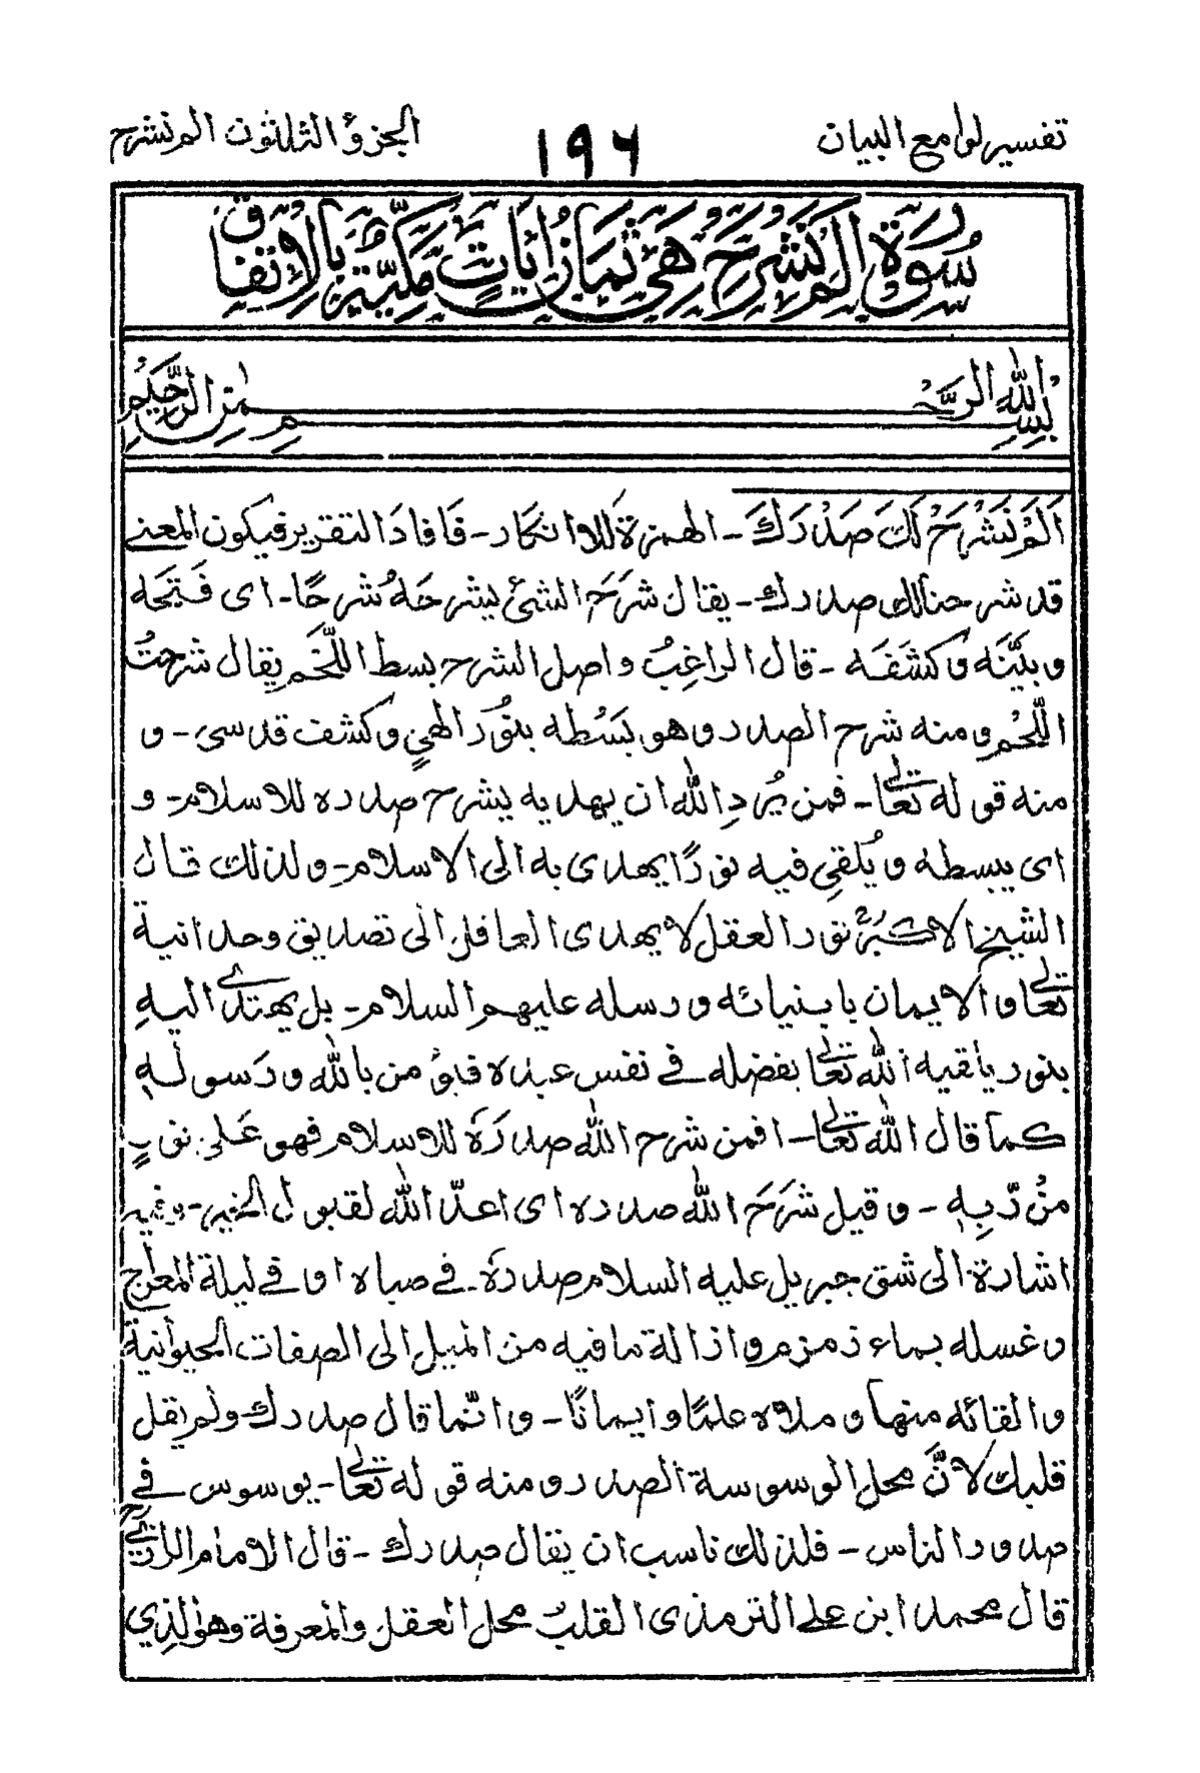 تفسير لوامع البيان
١٩٦
الجزؤ الثلاثون الم نشرح
سُورَةُ اَلَمْ نَشْرَحْ هِيَ ثَمَانُ اٰيَاتٍ مَكِّيَّةٌ بِالْاِتِّفَاقِ
بِسْمِ اللهِ الرَّحْمٰنِ الرَّحِيْمِ
اَلَمْ نَشْرَحْ لَكَ صَدْرَكَ - الهمزة للانكار - فَافادَ التقرير فيكون المعنے
قد شرحنا لك صدرك - يقال شَرَحَ الشئ يشرحَهُ شرحًا - اى فَتَحَه
و بيَّنَه و كشَفَه - قال الراغِبُ و اصل الشرح بسط اللَّحْم يقال شرحتُ
اللَّحْم و منه شرح الصدر و هو بَسْطه بنُور الهيٍ و كشف قدسى - و
منه قوله تعالٰى - فمن يُردِ الله ان يهديه يشرح صدره للاسلام - و
اى يبسطه و يُلقي فيه نورًا يهدى به الى الاسلام - و لذلك قال
الشيخ الاكبرؒ نور العقل لا يهدى العاقل الى تصديق وحدانية
تعالٰى و الايمان بابنيائه و رسله عليهم السلام - بل يهتدى اليهِ
بنور يلقيه الله تعالٰى بفضله في نفس عبده فيؤمن بالله و رَسولهٖ
كما قال الله تعالٰى - افمن شرح الله صدرَهُ للاسلام فهو عَلى نورٍ
منْ رّبِهٖ - و قيل شَرَحَ الله صدره اى اعدّ الله لقبول الخير - و فيه
اشارة الى شق جبريل عليه السلام صدرَهُ - في صباه او في ليلة المعراج
و غسله بماء زمزم و ازالة ما فيه من الميل الى الصفات الحيوانية
و القائه منها و ملاه علمًا و ايمانًا - و انّما قال صدرك و لم يقل
قلبك لانَّ محل الوسوسة الصدر و منه قوله تعالٰى - يوسوس في
صدور الناس - فلذلك ناسب ان يقال صدرك - قال الامام الرازيؒ
قال محمد ابن علے الترمذى القلبُ محل العقل و المعرفة وهوالذي